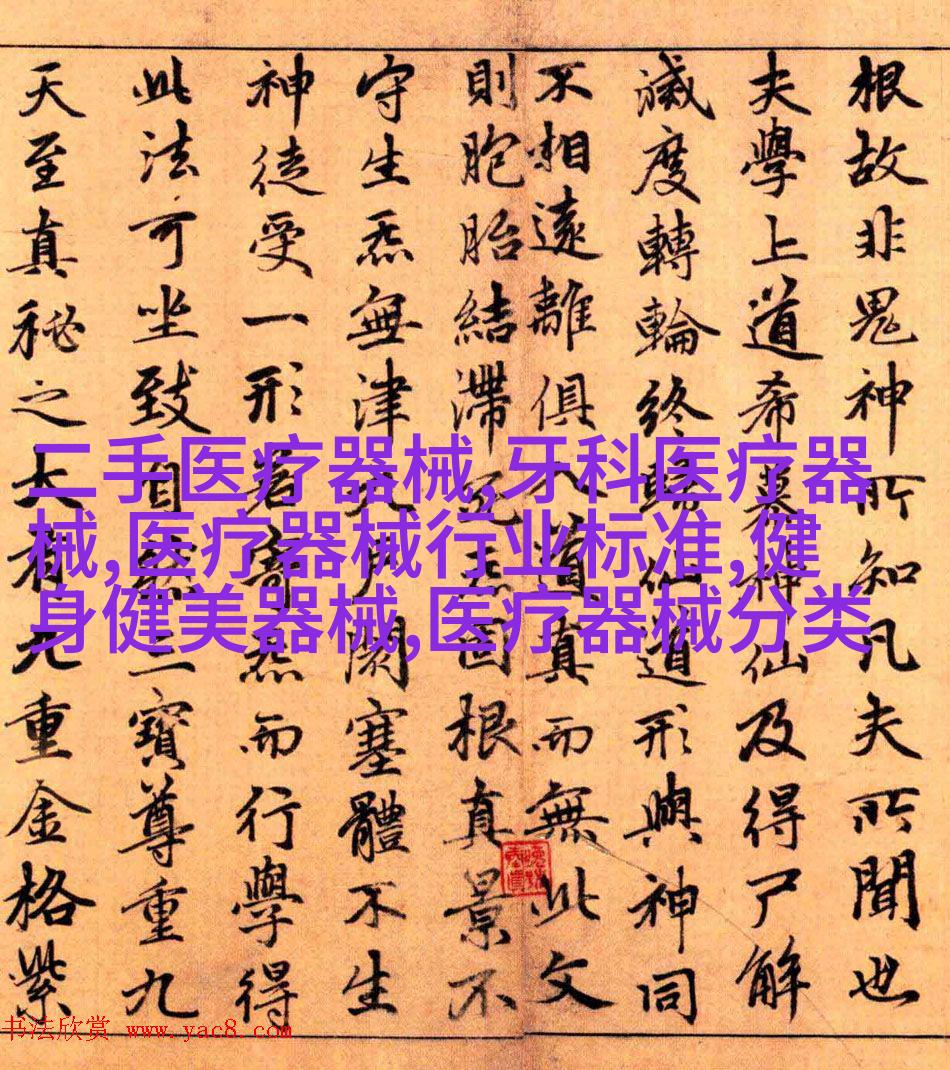 根故非鬼神所知凡夫所聞也
夫學上道希慕神仙及得尸解
滅度轉輪終歸仙道形與神同
不相遠離俱入道真而無此文
則胞胎結滯死炁固根真景不
守生炁無津戶闕塞體不生
神徒受一形若寄炁而行學得
此法可坐致自然三寶尊重九
天至真秘之大有九重金格紫
二手医疗器械,牙科医疗器
械,医疗器械行业标准,健
身健美器械,医疗器械分类
书法欣赏 www.yac8.com